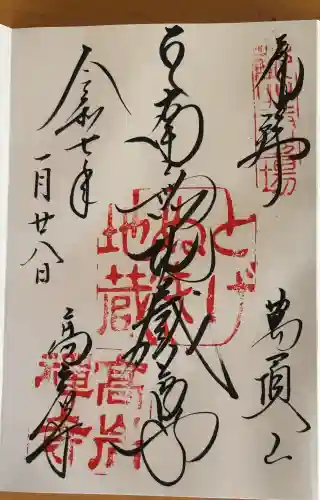 巣鴨
萬頂山
南無地蔵尊
令和七年
一月廿八日
高岩寺
とげ
ぬき
地蔵
高岩
禅寺